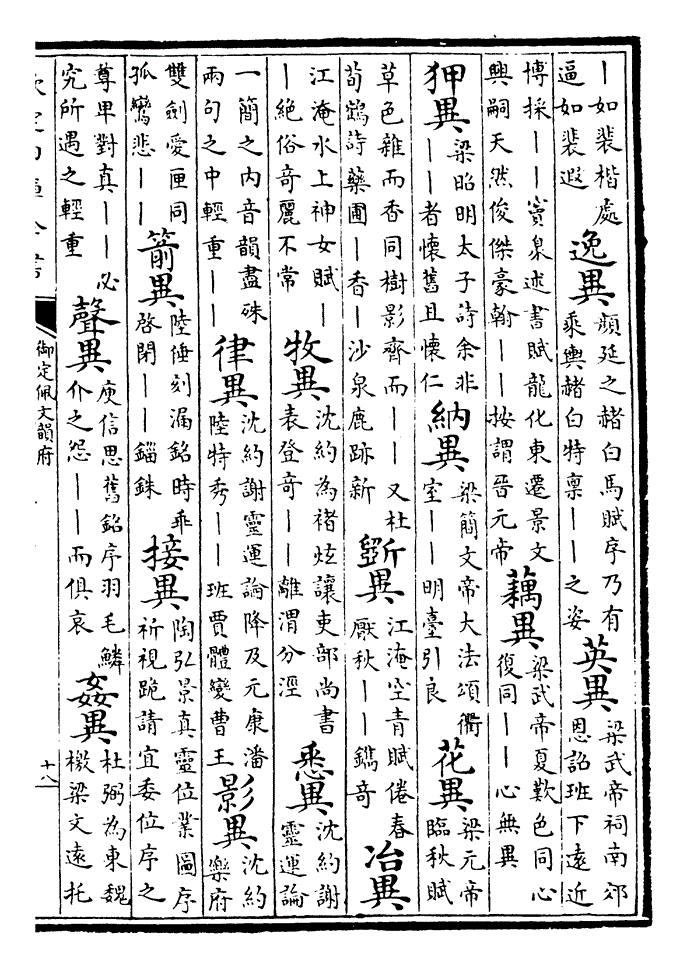 丨如裴楷處
逼如裴遐
逸異
顔延之赭白馬賦序乃有
乘輿赭白特禀丨丨之姿
英異
梁武帝祠南郊
恩詔班下遠近
博採丨丨竇臮述書賦龍化東遷景文
興嗣天然俊傑豪翰丨丨按謂晉元帝
藕異
梁武帝夏歎色同心
復同丨丨心無異
狎異
梁昭明太子詩余非
丨丨者懷舊且懷仁
納異
梁簡文帝大法頌衢
室丨丨明臺引良
花異
梁元帝
臨秋賦
草色雜而香同樹影齊而丨丨又杜
荀鶴詩藥圃丨香丨沙泉鹿跡新
斵異
江淹空青賦倦春
厭秋丨丨鐫竒
冶異
江淹水上神女賦丨
丨絶俗竒麗不常
牧異
沈約為褚炫讓吏部尚書
表登竒丨丨離渭分涇
悉異
沈約謝
靈運論
一簡之內音韻盡殊
兩句之中輕重丨丨
律異
沈約謝靈運論降及元康潘
陸特秀丨丨班賈體變曹王
影異
沈約
樂府
雙劍愛匣同
孤鸞悲丨丨
箭異
陸倕刻漏銘時乖
啓閉丨丨錙銖
接異
陶弘景真靈位業圖序
祈視跪請宜委位序之
尊卑對真丨丨必
究所遇之輕重
聲異
庾信思舊銘序羽毛鱗
介之怨丨丨而俱哀
姦異
杜弼為東魏
檄梁文遠托
欽定四庫全書
御定佩文韻府
十八